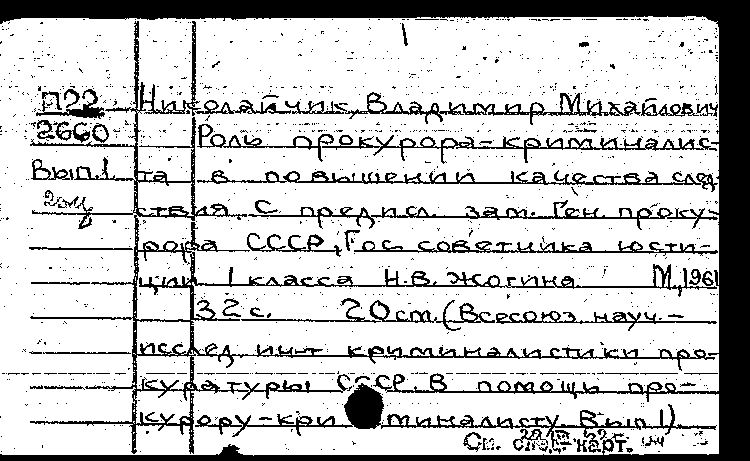 П22 Николайчик, Владимир Михайлович
2660 Роль прокурора-криминалис-
Вып.1 та в повышении качества след-
ствия. С предисл. зам. Ген. проку-
рора СССР, Гос советника юсти-
ции 1 класса Н.В. Жогина. М, 1961
32с. 20см. (Всесоюз. науч.-
исслед. ин-т криминалистики про-
куратуры СССР. В помощь про-
курору-криминалисту. Вып 1).
См. след. карт.